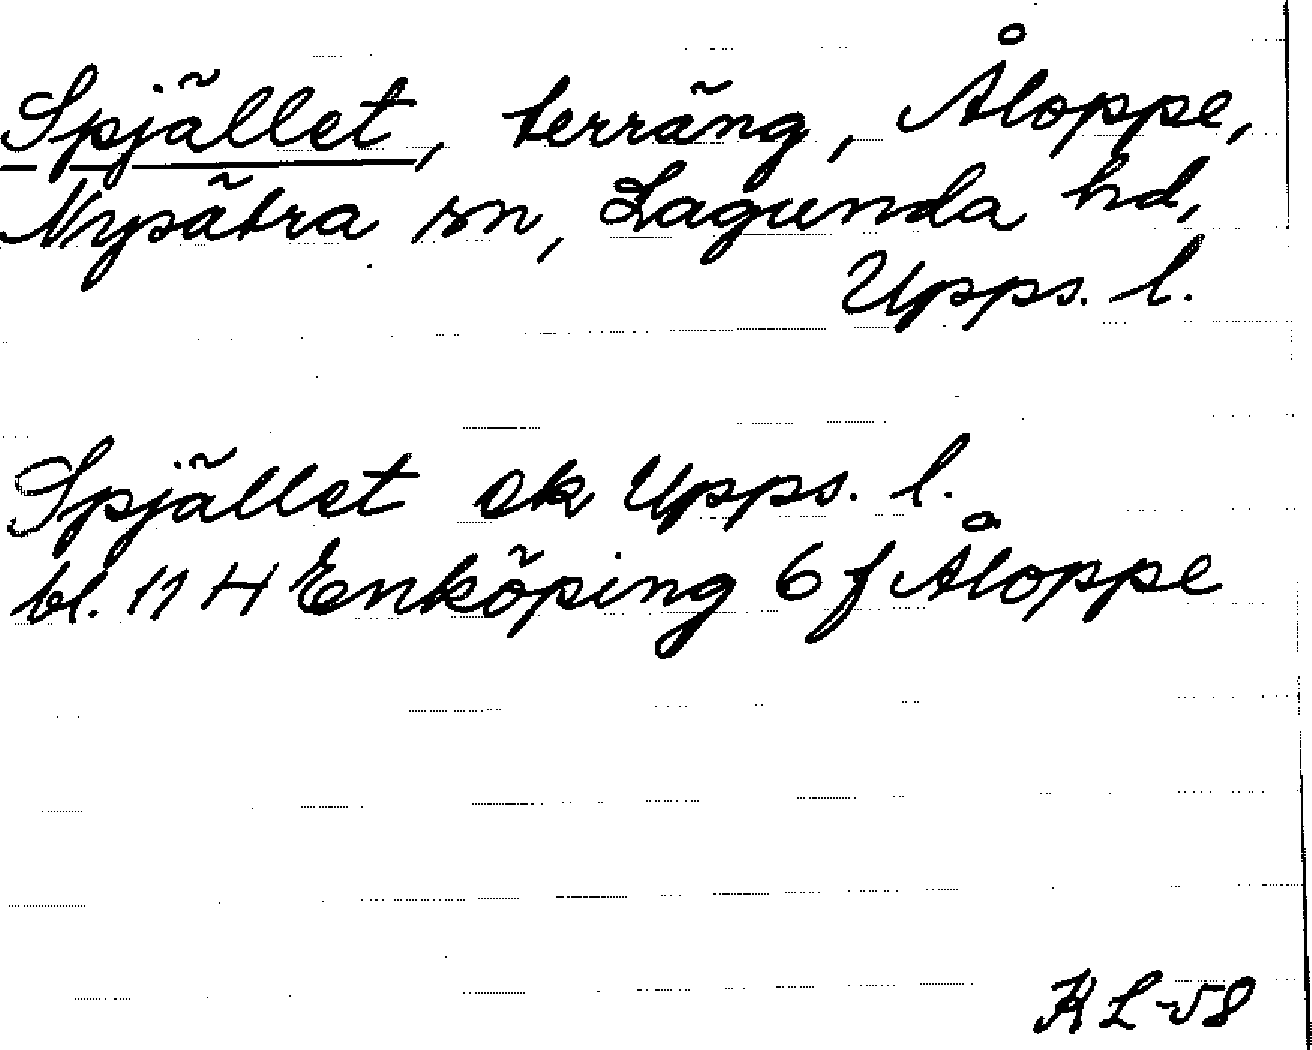 Spjället, terräng, Åloppe,
Nysätra sn, Lagunda hd,
Upps. l.
Spjället ek Upps. l.
bl. 11 H Enköping 6 f Åloppe
KL-58